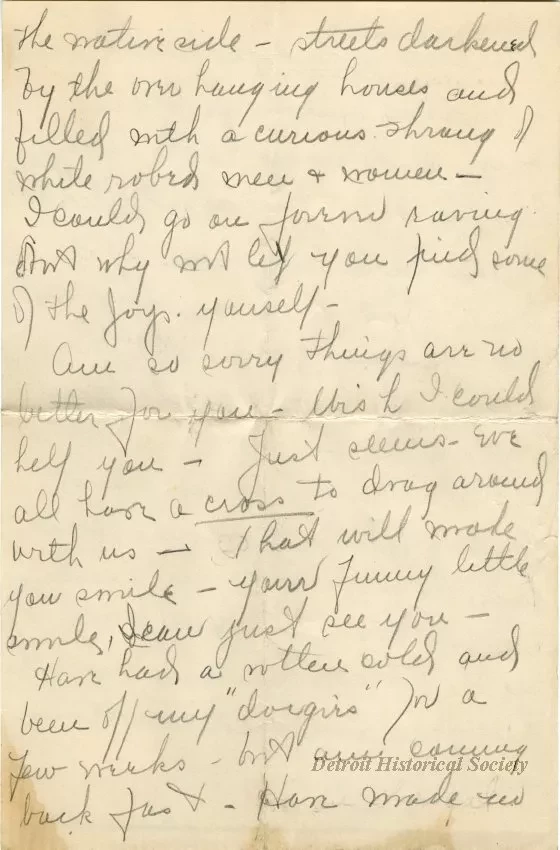 the native side - streets darkened
by the over hanging houses and
filled with a curious throng of
white robed men + women -
I could go on forever raving
but why not let you find some
of the joys. yourself -
Am so sorry things are no
better for you - Wish I could
help you - Just seems - we
all have a cross to drag around
with us - That will make
you smile - your funny little
smile, I can just see you -
Have had a rotten cold and
been off my "doigirs" for a
few weeks - but am coming
back fast - Have made no
Detroit Historical Society